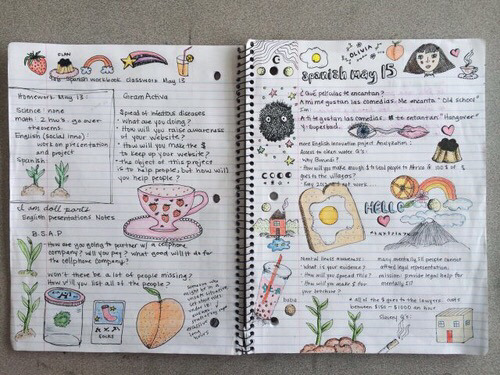 FLAN
Spanish workbook classwork May 13
Homework May 13:
Science: none
math: 2 hw's. go over
theorems.
English (social inno)
work on presentation
and project
Spanish
Gram Activa
Spread of infectous diseases
• What are you doing?
• How will you raise awareness
of your website?
• How will you make the $
to keep up your website?
• the object of this project
is to help people, but how will
you help people?
I am doll parts
English presentations Notes
B.S.A.P
How are you going to partner w/ a cellphone
company? will you pay? what good will it do for
the cellphone company?
Won't there be a lot of people missing?
How will you list all of the people?
OLIVIA
Spanish May 15
¿Qué peliculas te encantan?
A mi me gustan las comedias. Me encanta "Old School"
A ti te gustan las comedias. te encantan "Hangover"
y "Superbad".
more English innovation project
Access to clean water Q's:
Why
How will you make enough $ to lead people to Africa
to the villages?
not work
HELLO
Mental illness Awareness:
• What is your audience?
• How will you spread this?
• How will you make $ for
your brochure?
Many mentally ill people cannot
afford legal representation.
mission: provide legal help for
mentally ill
* all of the $ goes to the lawyers.
between $150 - $1000 an hour
boba
Slavery Q's: